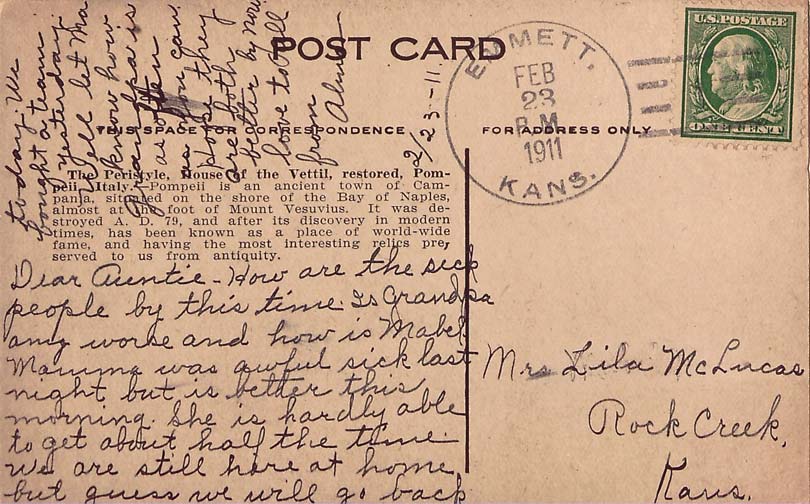 POST CARD
THIS SPACE FOR CORRESPONDENCE
FOR ADDRESS ONLY
EMMETT.
FEB
23
P.M.
1911
KANS.
U.S. POSTAGE
ONE CENT
The Peristyle, House of the Vettii, restored, Pom-
peii, Italy.—Pompeii is an ancient town of Cam-
pania, situated on the shore of the Bay of Naples,
almost at the foot of Mount Vesuvius. It was de-
stroyed A. D. 79, and after its discovery in modern
times, has been known as a place of world-wide
fame, and having the most interesting relics pre-
served to us from antiquity.
Dear Auntie - How are the sick
people by this time. Is Grandpa
any worse and how is Mabel
Mamma was awful sick last
night but is better this
morning. She is hardly able
to get about half the time.
We are still here at home
but guess we will go back
today. We
bought a team
yesterday.
Well let Ma
know how
Grandpa is
as often
as you can.
Hope they
are both
better by now
love to all
from Alma
2/23-11.
Mrs Lila McLucas
Rock Creek,
Kans.